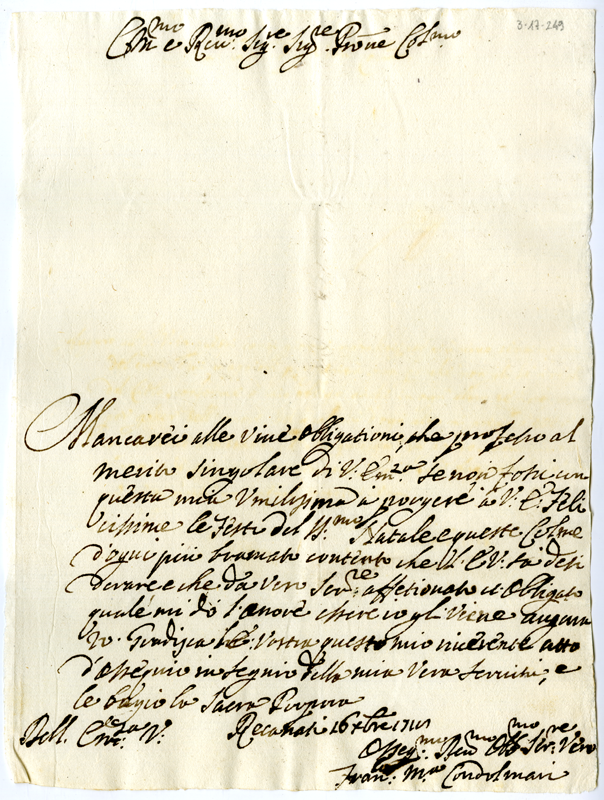 3-17-249
Em.mo e Rev.mo Sig.re Sig.re Prone Col.mo
Mancarei alle vive obligationi, che professo al
merito singolare di V. Em.za se non fossi con
questa mia Umilissima a porgere a V. E. Feli
cissime le Feste del SS.mo Natale e queste Colme
d'ogni più bramato contento che l' E. V. sà desi
derare e che da vero Ser.re affetionato et Obligato
quale mi dò l'onore essere io gli viene augura
to. Gradisca l'E. Vostra questo mio riverente atto
d'ossequio in segnio della mia Vera Servitù, e
le bagio la Sacra Porpora
Dell. Em.za V.
Recanati 16 Xbre
Osseq.mo Rev.mo Obb.mo Ser.re Vero
Fran. M.a Condolmari